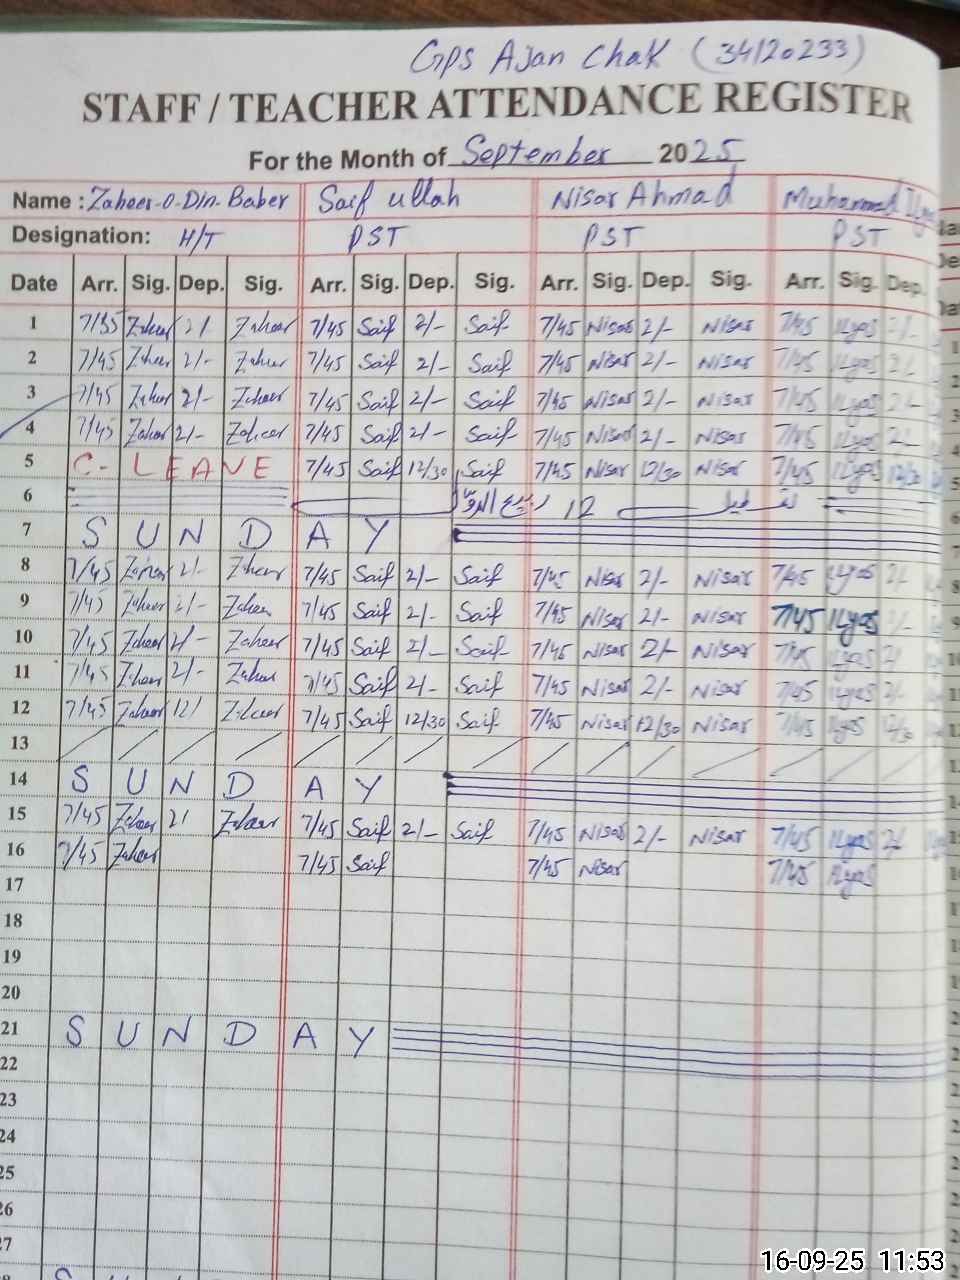 GPS Ajan Chak (34120233)
STAFF / TEACHER ATTENDANCE REGISTER
For the Month of September 2025
Name : Zaheer-O-Din-Baber Saif ullah Nisar Ahmad Muhammad Ilyas
Designation: H/T PST PST PST
Date Arr. Sig. Dep. Sig. Arr. Sig. Dep. Sig. Arr. Sig. Dep. Sig. Arr. Sig. Dep.
1 7/35 Zaheer 2/- Zaheer 7/45 Saif 2/- Saif 7/45 Nisar 2/- Nisar 7/45 Ilyas 2/-
2 7/45 Zaheer 2/- Zaheer 7/45 Saif 2/- Saif 7/45 Nisar 2/- Nisar 7/45 Ilyas 2/-
3 7/45 Zaheer 2/- Zaheer 7/45 Saif 2/- Saif 7/45 Nisar 2/- Nisar 7/45 Ilyas 2/-
4 7/45 Zaheer 2/- Zaheer 7/45 Saif 2/- Saif 7/45 Nisar 2/- Nisar 7/45 Ilyas 2/-
5 C- LEAVE 7/45 Saif 12/30 Saif 7/45 Nisar 12/30 Nisar 7/45 Ilyas 12/30
6 تعطیل 12 ربیع الاول
7 SUNDAY
8 7/45 Zaheer 2/- Zaheer 7/45 Saif 2/- Saif 7/45 Nisar 2/- Nisar 7/45 Ilyas 2/-
9 7/45 Zaheer 2/- Zaheer 7/45 Saif 2/- Saif 7/45 Nisar 2/- Nisar 7/45 Ilyas 2/-
10 7/45 Zaheer 2/- Zaheer 7/45 Saif 2/- Saif 7/45 Nisar 2/- Nisar 7/45 Ilyas 2/
11 7/45 Zaheer 2/- Zaheer 7/45 Saif 2/- Saif 7/45 Nisar 2/- Nisar 7/45 Ilyas 2/
12 7/45 Zaheer 12/ Zaheer 7/45 Saif 12/30 Saif 7/45 Nisar 12/30 Nisar 7/45 Ilyas 12/30
13
14 SUNDAY
15 7/45 Zaheer 2/ Zaheer 7/45 Saif 2/- Saif 7/45 Nisar 2/- Nisar 7/45 Ilyas 2/
16 7/45 Zaheer 7/45 Saif 7/45 Nisar 7/45 Ilyas
17
18
19
20
21 SUNDAY
22
23
24
25
26
27
16-09-25 11:53